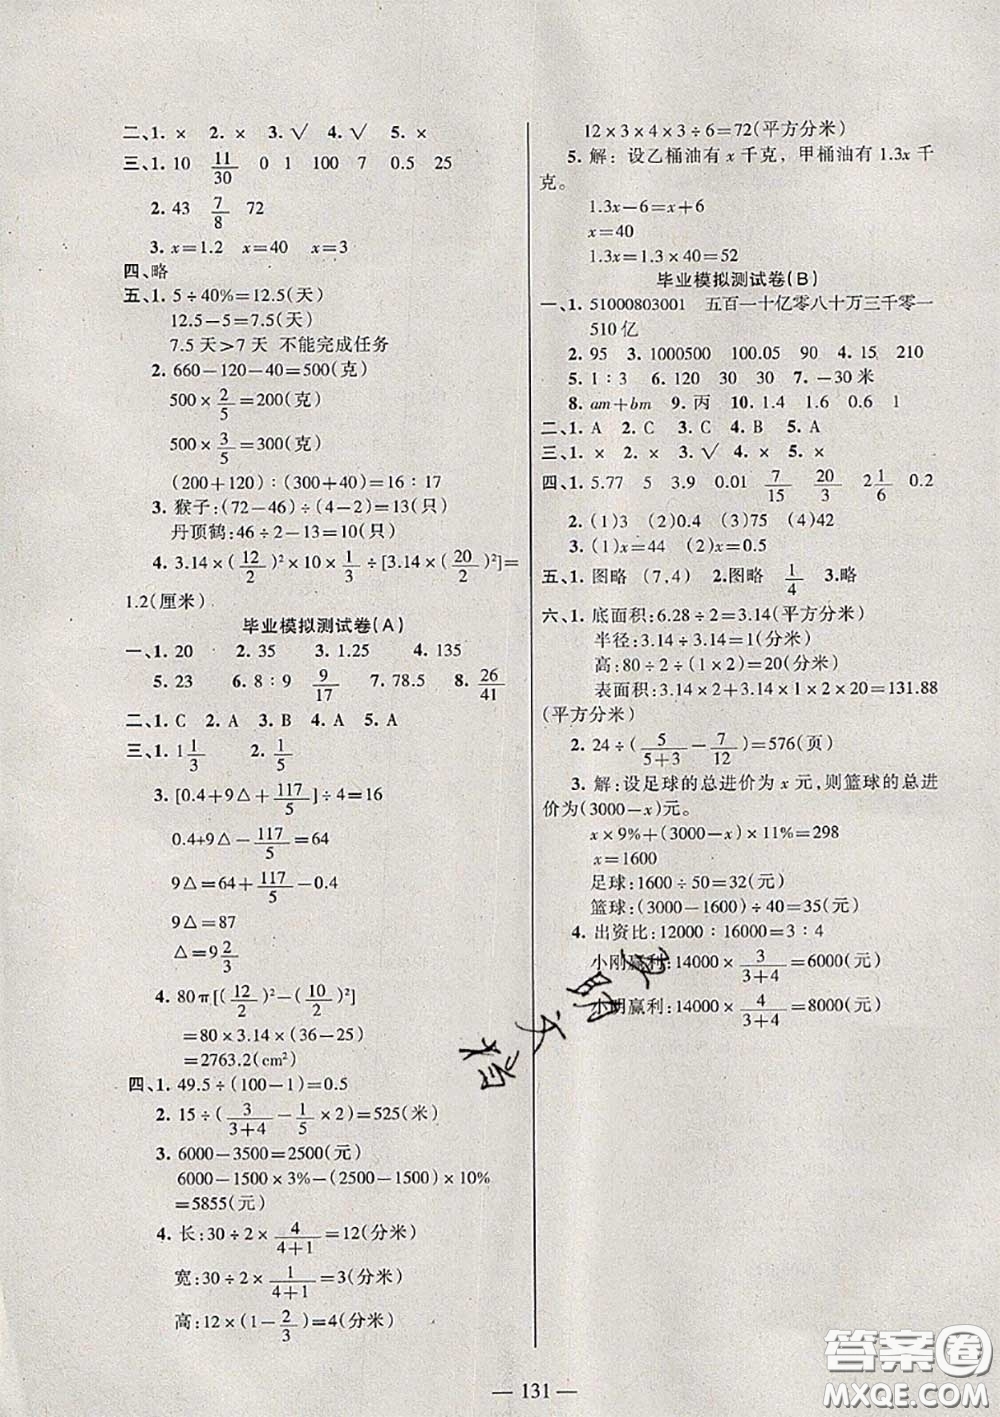 二、1. × 2. × 3. √ 4. √ 5. ×
三、1. 10 11/30 0 1 100 7 0.5 25
2. 43 7/8 72
3. x=1.2 x=40 x=3
四、略
五、1. 5÷40%=12.5(天)
12.5-5=7.5(天)
7.5 天>7 天 不能完成任务
2. 660-120-40=500(克)
500×2/5=200(克)
500×3/5=300(克)
(200+120):(300+40)=16:17
3. 猴子:(72-46)÷(4-2)=13(只)
丹顶鹤:46÷2-13=10(只)
4. 3.14×(12/2)²×10×1/3÷[3.14×(20/2)²]=
1.2(厘米)
毕业模拟测试卷(A)
一、1. 20 2. 35 3. 1.25 4. 135
5. 23 6. 8:9 9/17 7. 78.5 8. 26/41
二、1. C 2. A 3. B 4. A 5. A
三、1. 1 1/3 2. 1/5
3. [0.4+9△+117/5]÷4=16
0.4+9△-117/5=64
9△=64+117/5-0.4
9△=87
△=9 2/3
4. 80π[(12/2)²-(10/2)²]
=80×3.14×(36-25)
=2763.2(cm²)
四、1. 49.5÷(100-1)=0.5
2. 15÷(3/(3+4)-1/5×2)=525(米)
3. 6000-3500=2500(元)
6000-1500×3%-(2500-1500)×10%
=5855(元)
4. 长:30÷2×4/(4+1)=12(分米)
宽:30÷2×1/(4+1)=3(分米)
高:12×(1-2/3)=4(分米)
12×3×4×3÷6=72(平方分米)
5. 解:设乙桶油有 x 千克,甲桶油有 1.3x 千
克。
1.3x-6=x+6
x=40
1.3x=1.3×40=52
毕业模拟测试卷(B)
一、1. 51000803001 五百一十亿零八十万三千零一
510 亿
2. 95 3. 1000500 100.05 90 4. 15 210
5. 1:3 6. 120 30 30 7. -30 米
8. am+bm 9. 丙 10. 1.4 1.6 0.6 1
二、1. A 2. C 3. C 4. B 5. A
三、1. × 2. × 3. √ 4. × 5. ×
四、1. 5.77 5 3.9 0.01 7/15 20/3 2 1/6 0.2
2. (1)3 (2)0.4 (3)75 (4)42
3. (1)x=44 (2)x=0.5
五、1. 图略 (7,4) 2. 图略 1/4 3. 略
六、1. 底面积:6.28÷2=3.14(平方分米)
半径:3.14÷3.14=1(分米)
高:80÷2÷(1+1)=20(分米)
表面积:3.14×2+3.14×1×2×20=131.88
(平方分米)
2. 24÷(5/(5+3)-7/12)=576(页)
3. 解:设足球的总进价为 x 元,则篮球的总进
价为(3000-x)元。
x×9%+(3000-x)×11%=298
x=1600
足球:1600÷50=32(元)
篮球:(3000-1600)÷40=35(元)
4. 出资比:12000:16000=3:4
小刚赢利:14000×3/(3+4)=6000(元)
小明赢利:14000×4/(3+4)=8000(元)
— 131 —
答案圈
MXQE.COM